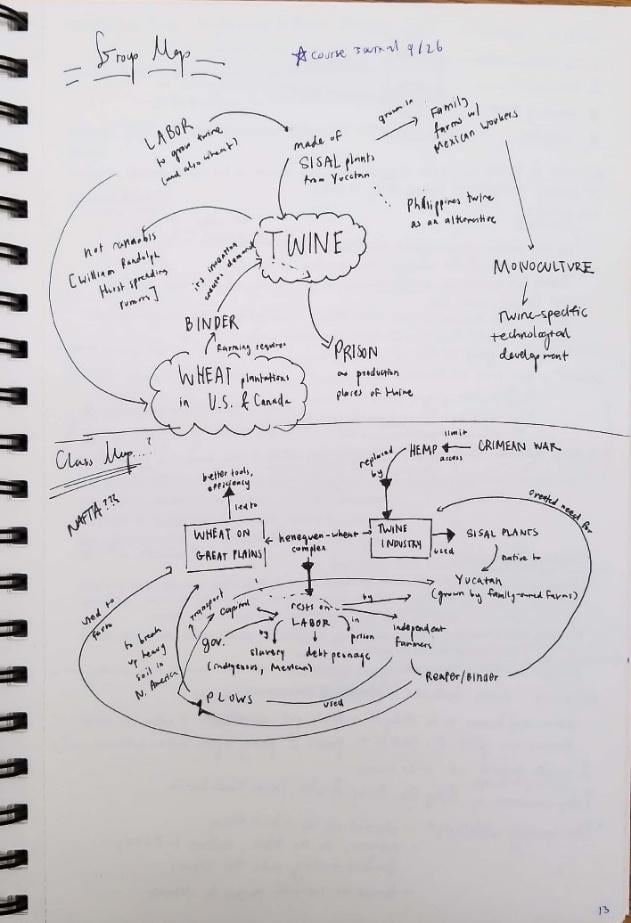 Group Map
☆ course journal 9/26
LABOR
to grow twine
(and also wheat)
made of
SISAL plants
from Yucatan
grown in
Family
farms w/
Mexican workers
Philippines twine
as an alternative
MONOCULTURE
Twine-specific
technological
development
not cannabis
[William Randolph
Hurst spreading
rumors]
TWINE
its invention
creates demand
BINDER
farming requires
WHEAT plantations
in U.S. & Canada
PRISON
as production
places of twine
Class Map...?
NAFTA???
better tools,
efficiency
led to
WHEAT ON
GREAT PLAINS
henequen-wheat
complex
replaced
by
HEMP
limit
access
CRIMEAN WAR
TWINE
INDUSTRY
used
SISAL PLANTS
native to
Yucatan
(grown by family-owned farms)
created need for
used to
farm
transport
capital
gov.
rests on
LABOR
by
by
in
slavery
(indigenous, Mexican)
debt peonage
prison
independent
farmers
to break
up heavy
soil in
N. America
PLOWS
used
Reaper/Binder
13